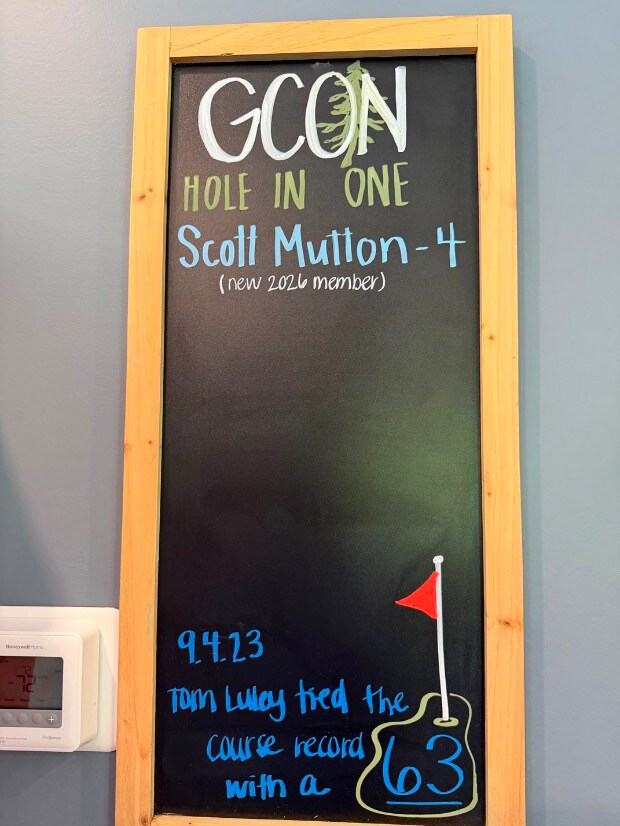 GCON
HOLE IN ONE
Scott Mutton - 4
(new 2026 member)
9.4.23
Tom Luley tied the
course record
with a 63
Honeywell Home
72